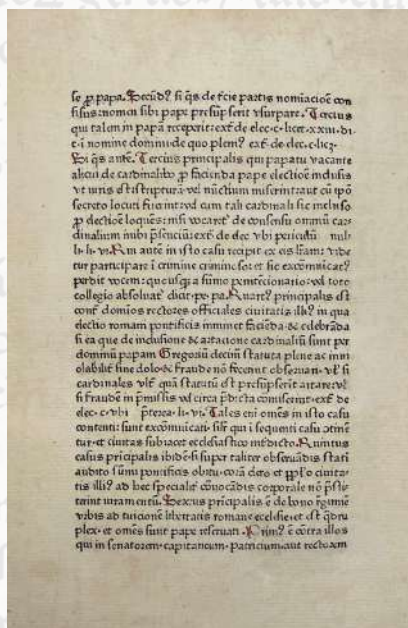 se p papa. Secūd⁹ si q̄s de fcie partis nomiacioē con
fisus: nomen sibi pape presūpserit vsurpare. Tercius
qui talem in papā receperit: ext̄ de elec. c. licet. xxiii. di
c. i nomine domini de quo plen⁹ ext̄ de elec. c. licz.
Si q̄s ante. Tercius principalis qui papatu vacante
alicui de cardinalib⁹ p facienda pape electiōe inclusis
secreto locuti fuerint: vel cum tali cardinali sic incluso
p electiōe loques: nisi vocaret̄ de consensu omniū car
dinalium inibi p̄senciū: ext̄ de elec vbi periculū nul
li. li. vi. in isto casu recipit ex eis vide
tur participare i crimine
perdit vocem: quousq̄ a sūmo penitenciario: vel toto
collegio absoluat̄ dicit. pe. pa. Quart⁹ principalis est
cont̄ domios rectores officiales ciuitatis ill⁹ in qua
electio romani pontificis imminet faciēda & celebrāda
si ea que de inclusione & artacione cardinaliū sunt per
dominū papam Gregoriū decimū statuta plene ac inui
olabilit̄ sine dolo & fraude nō fecerint obseruari. vl̄ si
cardinales vlt̄ quā statutū est presūpserit
si fraudē in p̄missis vel circa p̄dicta comiserint. ext̄ de
elec. c. vbi p̄terea. li. vi. Tales eni omes in isto casu
contenti: sunt excōmunicati. sil̄r qui i sequenti casu
tur. et ciuitas subiacet ecclesiastico int̄dicto. Quintus
casus principalis ibidē. si super taliter obseruādis stati
audito sūmi pontificis obitu. corā clero et pplo ciuita
tis illi⁹ ad hec specialit̄ cōuocādis corporale nō p̄sti
terint iuramentū. Sextus principalis ē de bono rgimine
vrbis ad tuicionē libertatis romane ecclesie. et est q̄dru
plex. et omēs sunt pape reseruati. Prim⁹ ē cōtra illos
qui in senatorem. capitaneum. patricium. aut rectorem